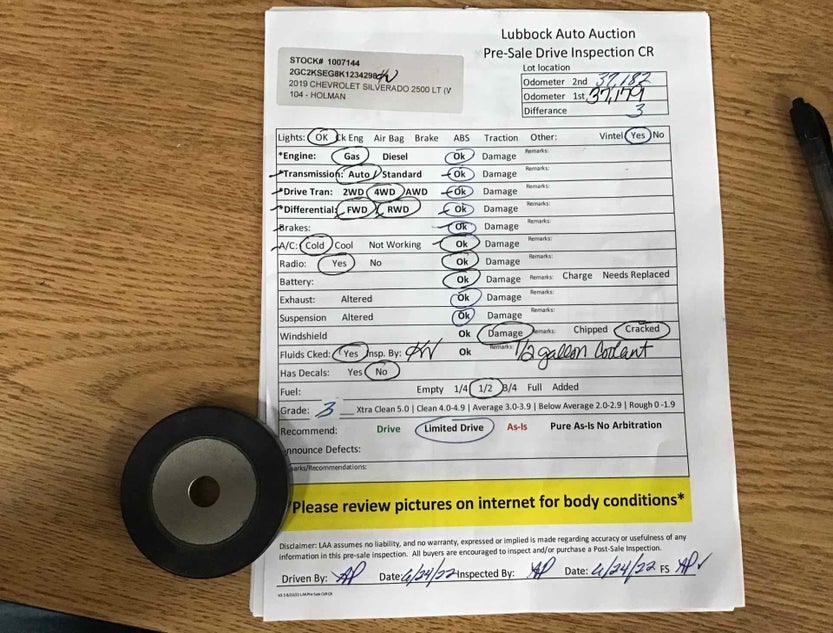 Lubbock Auto Auction
Pre-Sale Drive Inspection CR
STOCK# 1007144
2GC2KSEG8K1234298 KW
2019 CHEVROLET SILVERADO 2500 LT (V
104 - HOLMAN
Lot location
Odometer 2nd 37,182
Odometer 1st 37,179
Differance 3
Lights: OK Ck Eng Air Bag Brake ABS Traction Other: Vintel Yes No
*Engine: Gas Diesel Ok Damage Remarks:
*Transmission: Auto / Standard Ok Damage Remarks:
*Drive Tran: 2WD 4WD AWD Ok Damage Remarks:
*Differential: FWD RWD Ok Damage Remarks:
Brakes: Ok Damage Remarks:
A/C: Cold Cool Not Working Ok Damage Remarks:
Radio: Yes No Ok Damage Remarks:
Battery: Ok Damage Remarks: Charge Needs Replaced
Exhaust: Altered Ok Damage Remarks:
Suspension Altered Ok Damage Remarks:
Windshield Ok Damage Remarks: Chipped Cracked
Fluids Cked: Yes Insp. By: KW Ok Remarks: 1/2 gallon Coolant
Has Decals: Yes No
Fuel: Empty 1/4 1/2 3/4 Full Added
Grade: 3 Xtra Clean 5.0 | Clean 4.0-4.9 | Average 3.0-3.9 | Below Average 2.0-2.9 | Rough 0 -1.9
Recommend: Drive Limited Drive As-Is Pure As-Is No Arbitration
nnounce Defects:
arks/Recommendations:
*Please review pictures on internet for body conditions*
Disclaimer: LAA assumes no liability, and no warranty, expressed or implied is made regarding accuracy or usefulness of any
information in this pre-sale inspection. All buyers are encouraged to inspect and/or purchase a Post-Sale Inspection.
Driven By: AP Date: 6/24/22 Inspected By: AP Date: 6/24/22 FS AP